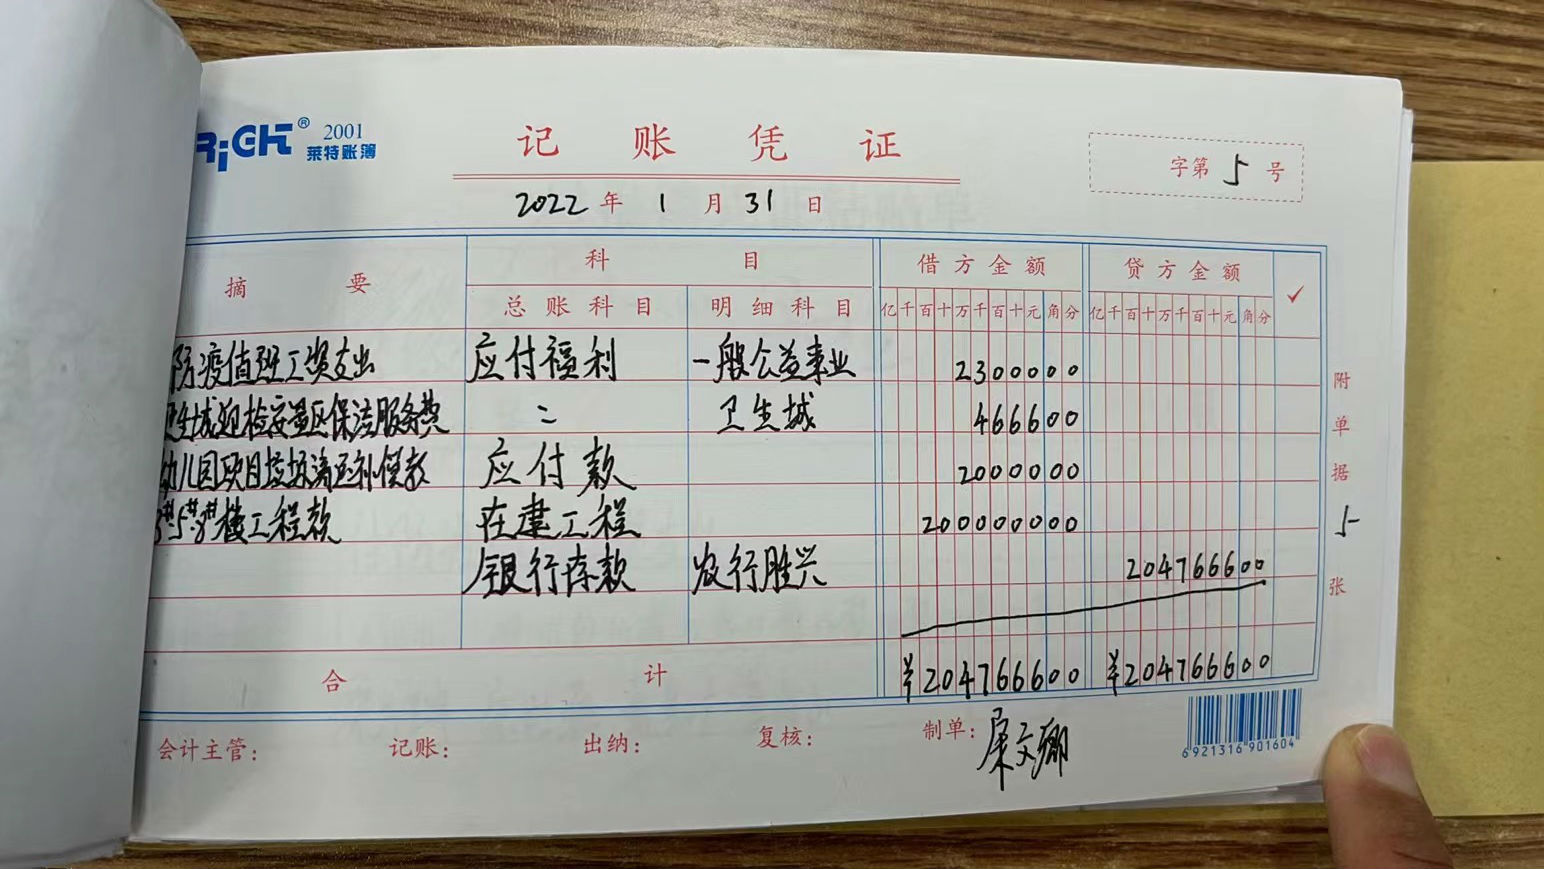 RiGHT® 2001
莱特账簿
记账凭证
字第 5 号
2022 年 1 月 31 日
摘要
科目
借方金额
贷方金额
✓
总账科目
明细科目
亿千百十万千百十元角分
亿千百十万千百十元角分
防疫值班工资支出 应付福利 一般公益事业 2300000
卫生城迎检安置区保洁服务费 〃 卫生城 466600
幼儿园项目垃圾清运补偿款 应付款 2000000
3#5#8#楼工程款 在建工程 200000000
银行存款 农行胜兴 204766600
合计 ¥204766600 ¥204766600
附单据 5 张
会计主管: 记账: 出纳: 复核: 制单:
6 921316 901604